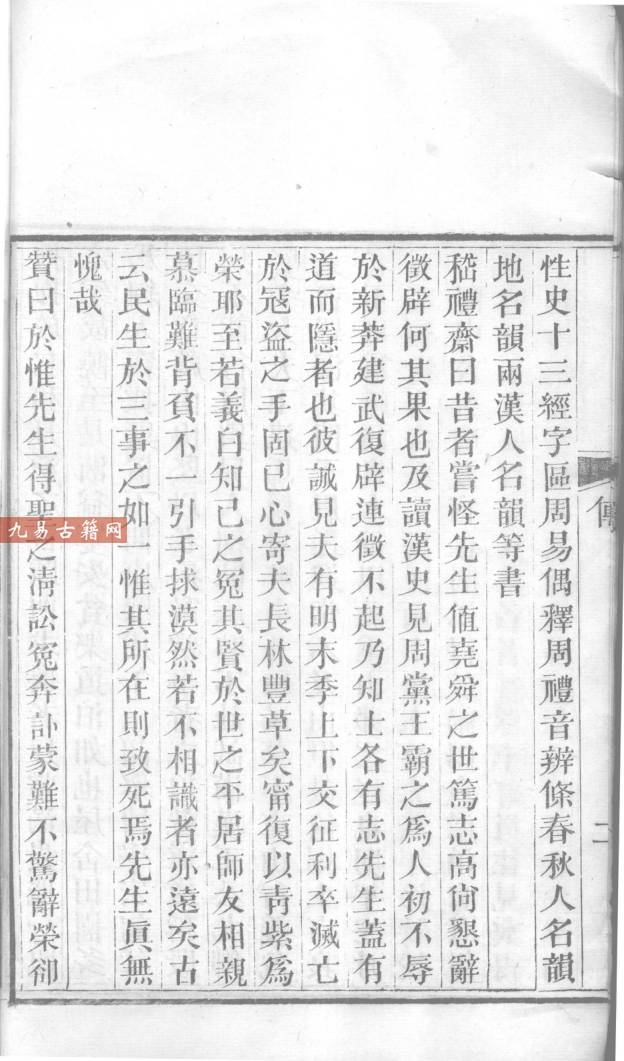 傳
二
性史十三經字區周易偶釋周禮音辨條春秋人名韻
地名韻兩漢人名韻等書
嵇禮齋曰昔者嘗怪先生值堯舜之世篤志高尙懇辭
徵辟何其果也及讀漢史見周黨王霸之爲人初不辱
於新莽建武復辟連徵不起乃知士各有志先生蓋有
道而隱者也彼誠見夫有明末季上下交征利卒滅亡
於冦盜之手固已心寄夫長林豐草矣甯復以靑紫爲
榮耶至若義白知己之冤其賢於世之平居師友相親
慕臨難背負不一引手捄漠然若不相識者亦遠矣古
云民生於三事之如一惟其所在則致死焉先生眞無
愧哉
贊曰於惟先生得聖之淸訟冤奔訃蒙難不驚辭榮卻
九易古籍网